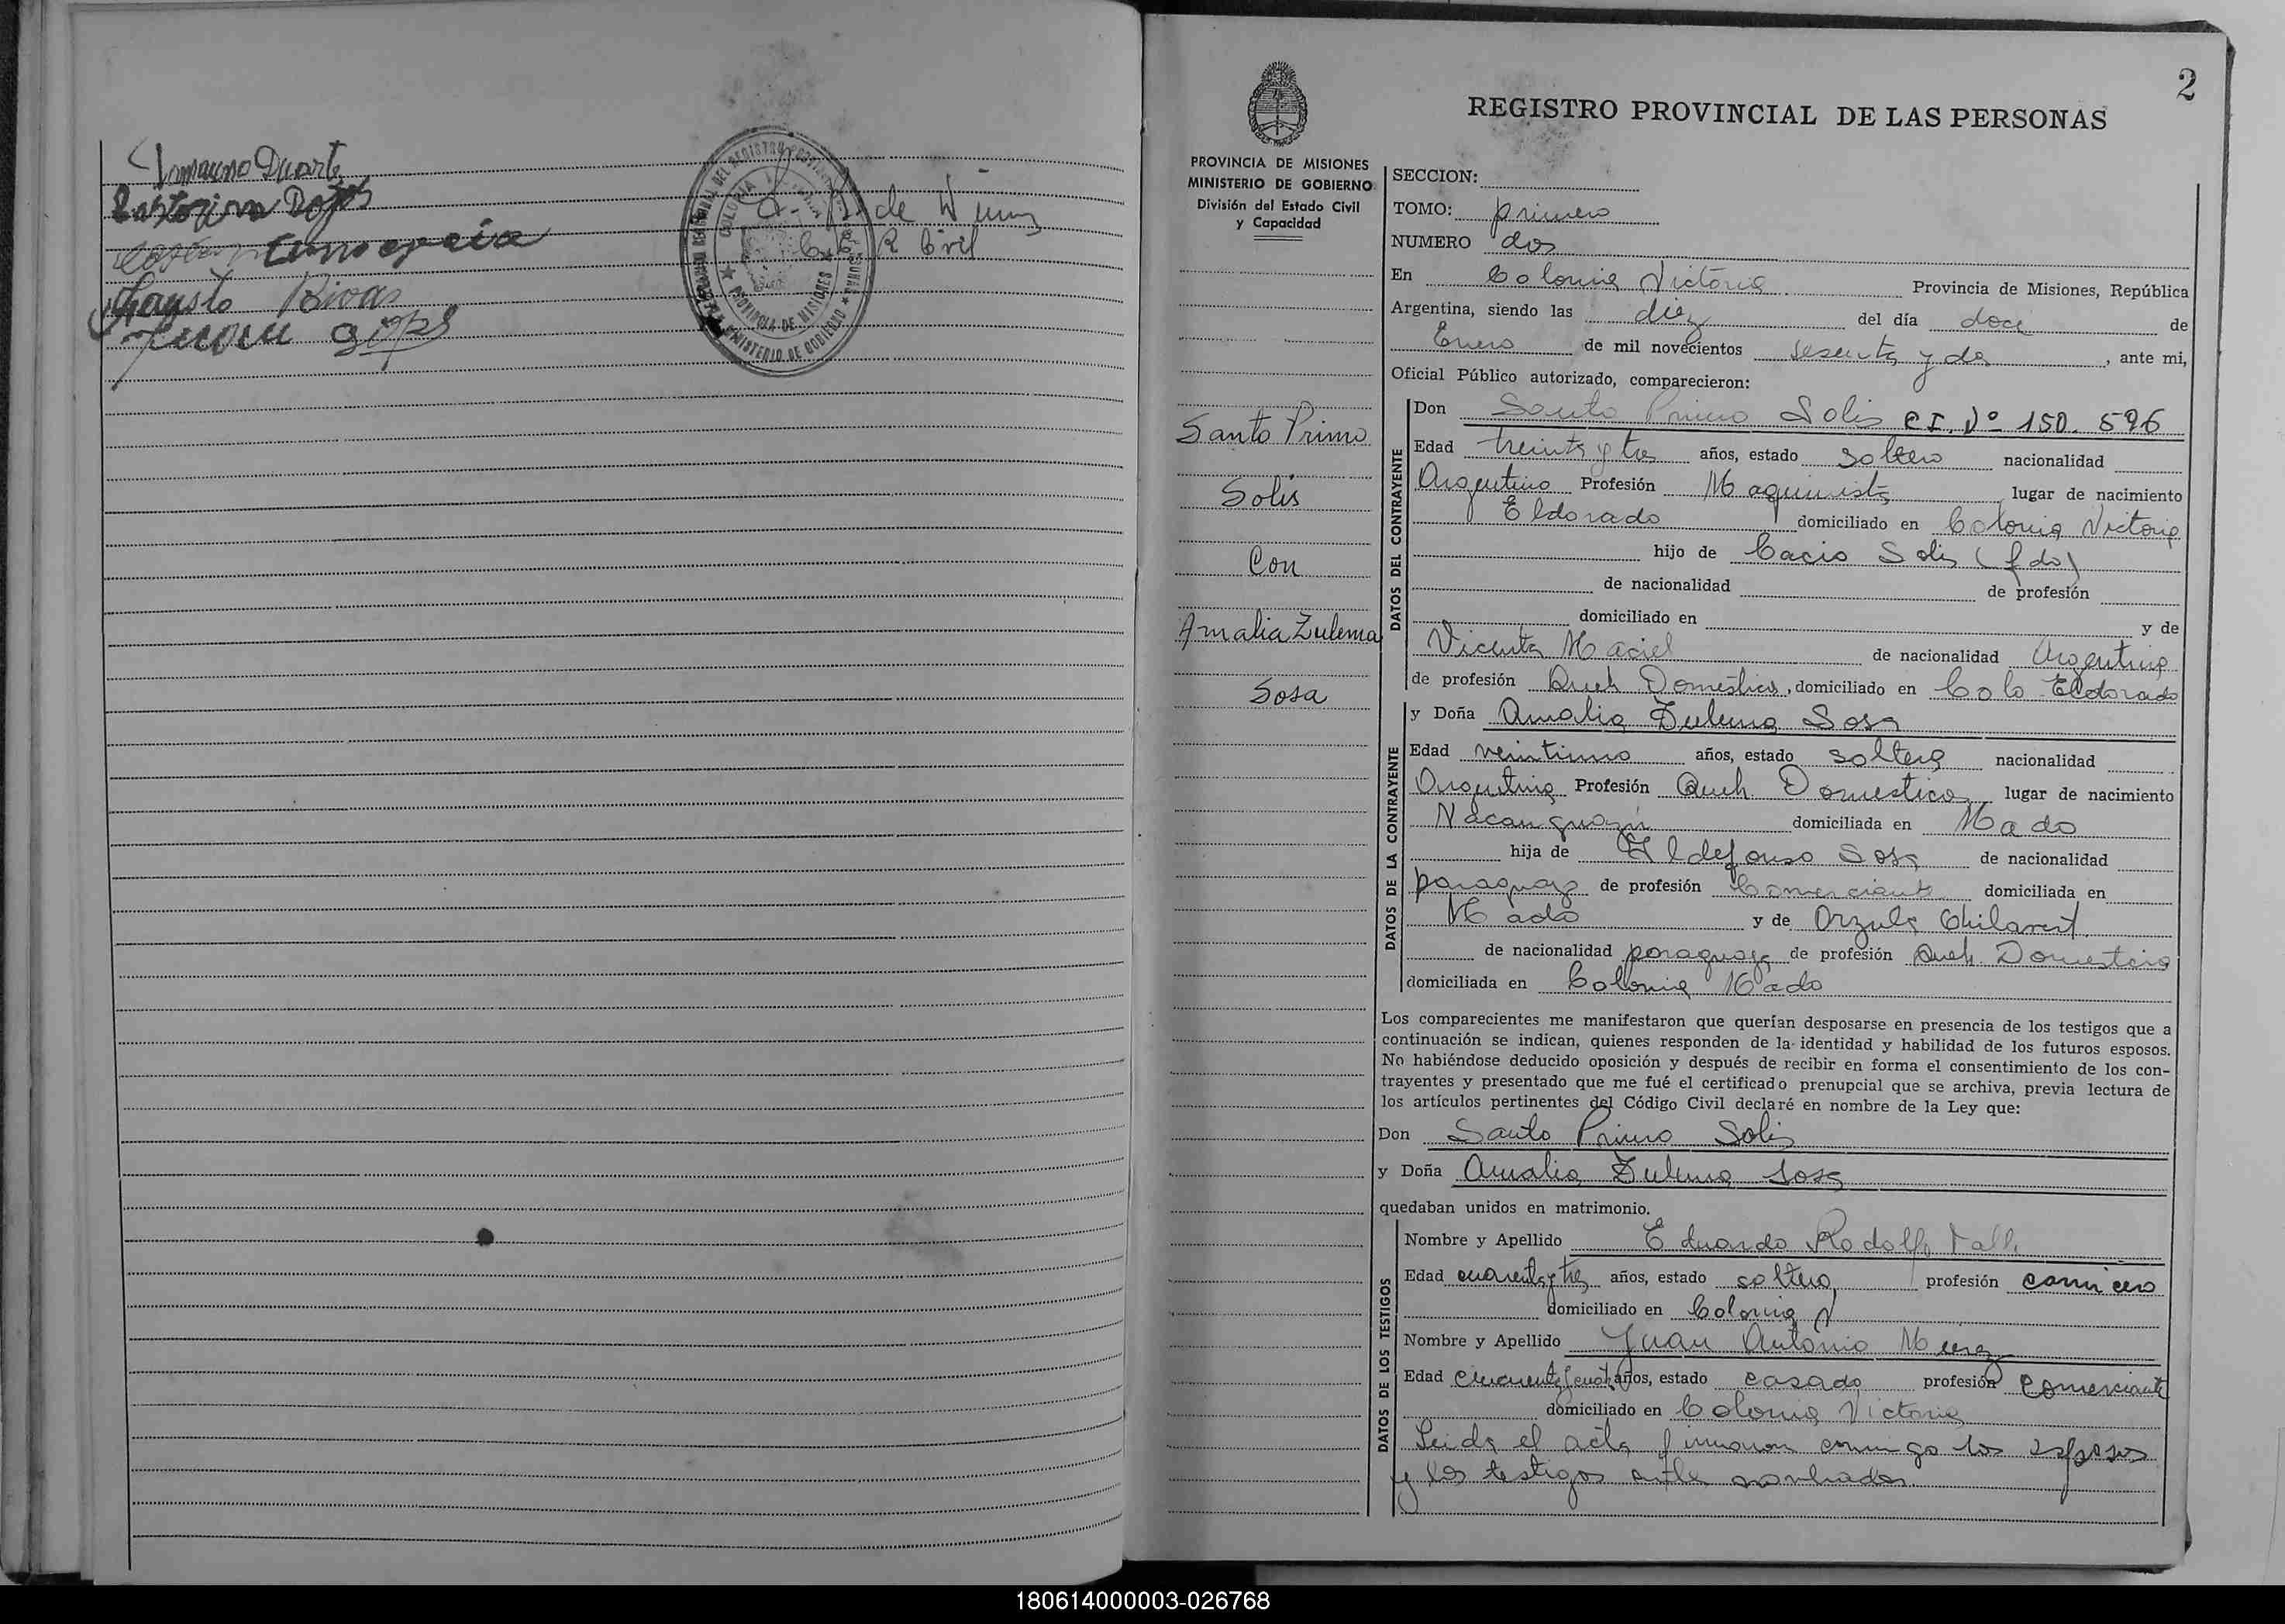 Duarte
Rojas
Fausto Rivas
COLONIA VICTORIA
PROVINCIA DE MISIONES
MINISTERIO DE GOBIERNO
de
R Civil
2
REGISTRO PROVINCIAL DE LAS PERSONAS
PROVINCIA DE MISIONES
MINISTERIO DE GOBIERNO
División del Estado Civil
y Capacidad
Santo Primo
Solis
Con
Amalia Zulema
Sosa
SECCION:
TOMO: primero
NUMERO dos
En Colonia Victoria Provincia de Misiones, República
Argentina, siendo las diez del día doce de
Enero de mil novecientos sesenta y dos, ante mi,
Oficial Público autorizado, comparecieron:
DATOS DEL CONTRAYENTE
Don Santo Primo Solis C I. Nº 150. 596
Edad treinta y tres años, estado soltero nacionalidad
Argentino Profesión Maquinista lugar de nacimiento
Eldorado domiciliado en Colonia Victoria
hijo de Cacio Solis (fdo)
de nacionalidad de profesión
domiciliado en y de
Vicenta Maciel de nacionalidad Argentina
de profesión Queh Domesticos, domiciliado en Colo Eldorado
DATOS DE LA CONTRAYENTE
y Doña Amalia Zulema Sosa
Edad veintiuno años, estado soltera nacionalidad
Argentina Profesión Queh. Domesticos lugar de nacimiento
Ñacanguazu domiciliada en Mado
hija de Ildefonso Sosa de nacionalidad
paraguayo de profesión Comerciante domiciliada en
Mado y de Orzula Chilavert
de nacionalidad paraguaya de profesión Queh. Domesticos
domiciliada en Colonia Mado
Los comparecientes me manifestaron que querían desposarse en presencia de los testigos que a
continuación se indican, quienes responden de la identidad y habilidad de los futuros esposos.
No habiéndose deducido oposición y después de recibir en forma el consentimiento de los con-
trayentes y presentado que me fué el certificado prenupcial que se archiva, previa lectura de
los artículos pertinentes del Código Civil declaré en nombre de la Ley que:
Don Santo Primo Solis
y Doña Amalia Zulema Sosa
quedaban unidos en matrimonio.
DATOS DE LOS TESTIGOS
Nombre y Apellido Eduardo Rodolfo
Edad cuarenta y tres años, estado soltero profesión carnicero
domiciliado en Colonia V
Nombre y Apellido Juan Antonio
Edad años, estado casado profesión comerciante
domiciliado en Colonia Victoria
Leida el acta firmaron conmigo los esposos
y los testigos ante nombrados.
180614000003-026768